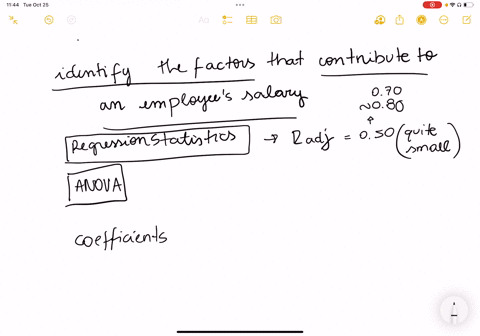 11:44 Tue Oct 25
identify the factors that contribute to
an employee's salary
0.70
~0.80
↑
Regression Statistics → Radj = 0.50 (quite small)
ANOVA
coefficients